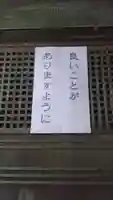 良いことが
ありますように